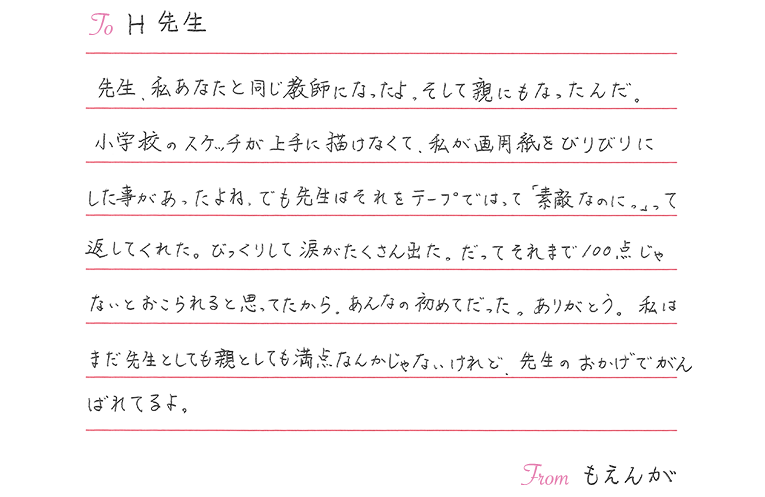 To H 先生
先生、私あなたと同じ教師になったよ。そして親にもなったんだ。
小学校のスケッチが上手に描けなくて、私が画用紙をびりびりに
した事があったよね、でも先生はそれをテープではって「素敵なのに。」って
返してくれた。びっくりして涙がたくさん出た。だってそれまで100点じゃ
ないとおこられると思ってたから、あんなの初めてだった。ありがとう。私は
まだ先生としても親としても満点なんかじゃないけれど、先生のおかげでがん
ばれてるよ。
From もえんが